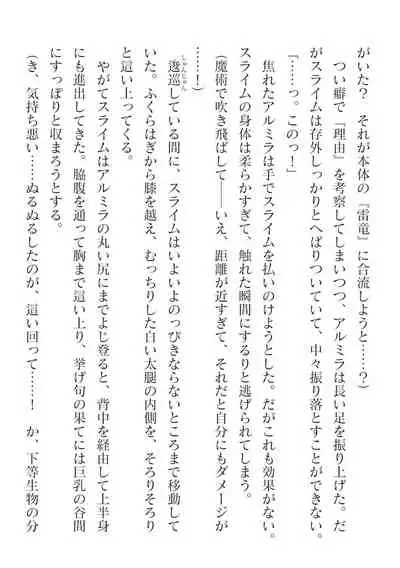 がいた？　それが本体の『雷竜』に合流しようと……？）
つい癖で『理由』を考察してしまいつつ、アルミラは長い足を振り上げた。だ
がスライムは存外しっかりとへばりついていて、中々振り落とすことができない。
「……っ。このっ！」
焦れたアルミラは手でスライムを払いのけようとした。だがこれも効果がない。
スライムの身体は柔らかすぎて、触れた瞬間にするりと逃げられてしまう。
（魔術で吹き飛ばして――いえ、距離が近すぎて、それだと自分にもダメージが
……！）
逡巡している間に、スライムはいよいよのっぴきならないところまで移動して
しゅんじゅん
いた。ふくらはぎから膝を越え、むっちりした白い太腿の内側を、そろりそろり
と這い上ってくる。
やがてスライムはアルミラの丸い尻にまでよじ登ると、背中を経由して上半身
にも進出してきた。脇腹を通って胸まで這い上り、挙げ句の果てには巨乳の谷間
にすっぽりと収まろうとする。
（き、気持ち悪い……ぬるぬるしたのが、這い回って……！　か、下等生物の分